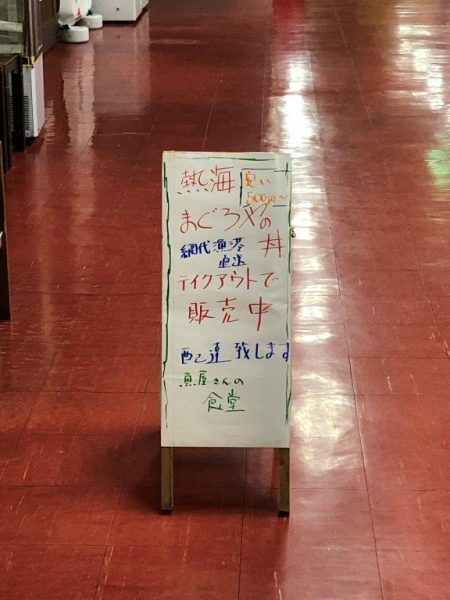 熱海
安い
500円〜
まぐろやの
丼
網代漁港
直送
テイクアウトで
販売中
配達致します
魚屋さんの
食堂